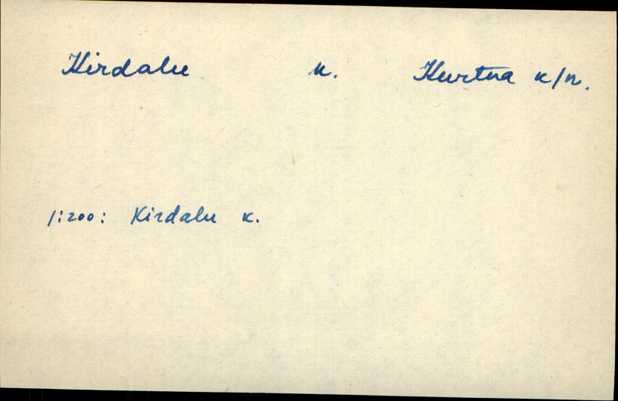 Kirdalu k. Kurtna k/n.
1:200: Kirdalu k.